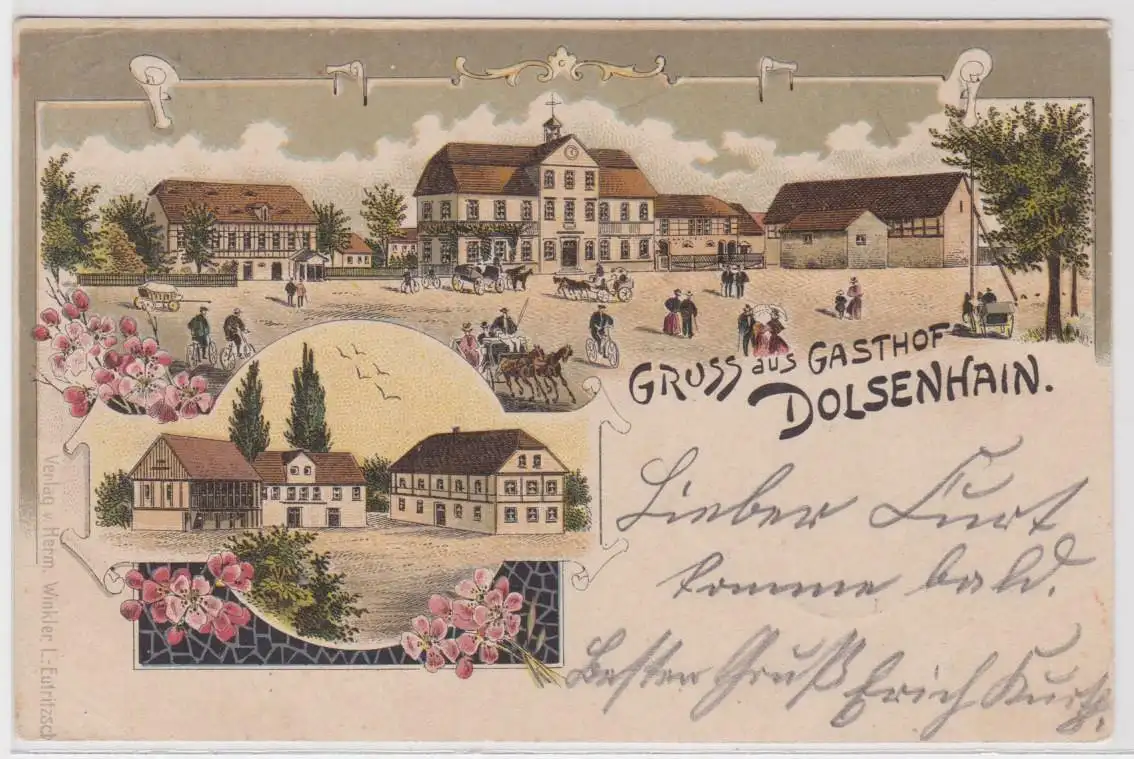 GRUSS aus GASTHOF
DOLSENHAIN.
Lieber Kurt
komme bald.
Besten Gruß Erich Kurth.
Verlag v. Herm. Winkler, L.-Eutritzsch